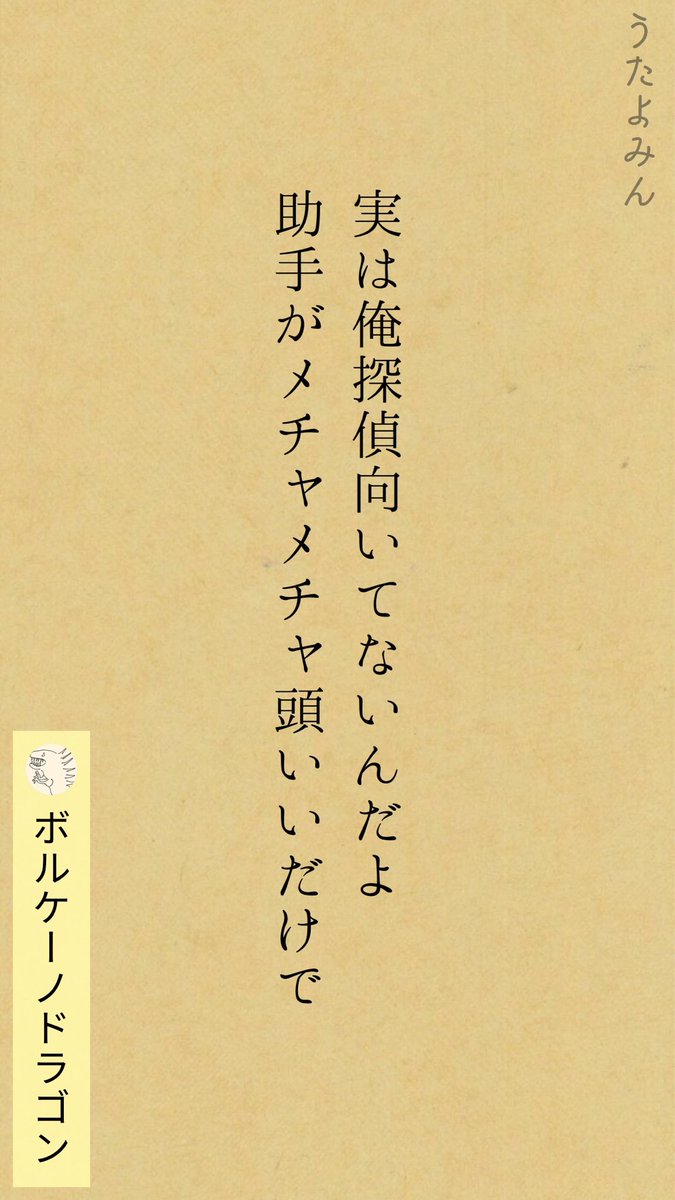 うたよみん
実は俺探偵向いてないんだよ
助手がメチャメチャ頭いいだけで
ボルケーノドラゴン